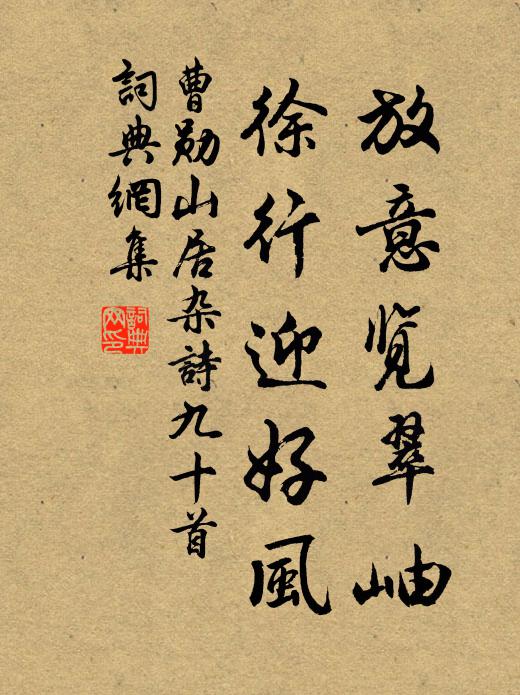 放意览翠岫
徐行迎好風
曹勋山居杂詩九十首
詞典網集
詞典网印